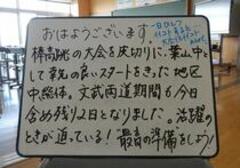 おはようございます。
一日ひとつ
棒高跳の大会を皮切りに、葉山中と
して幸先の良いスタートをきった地区
中総体。文武両道期間も今日
含め残り2日となりました。活躍の
ときが迫っている！最高の準備をしよう！